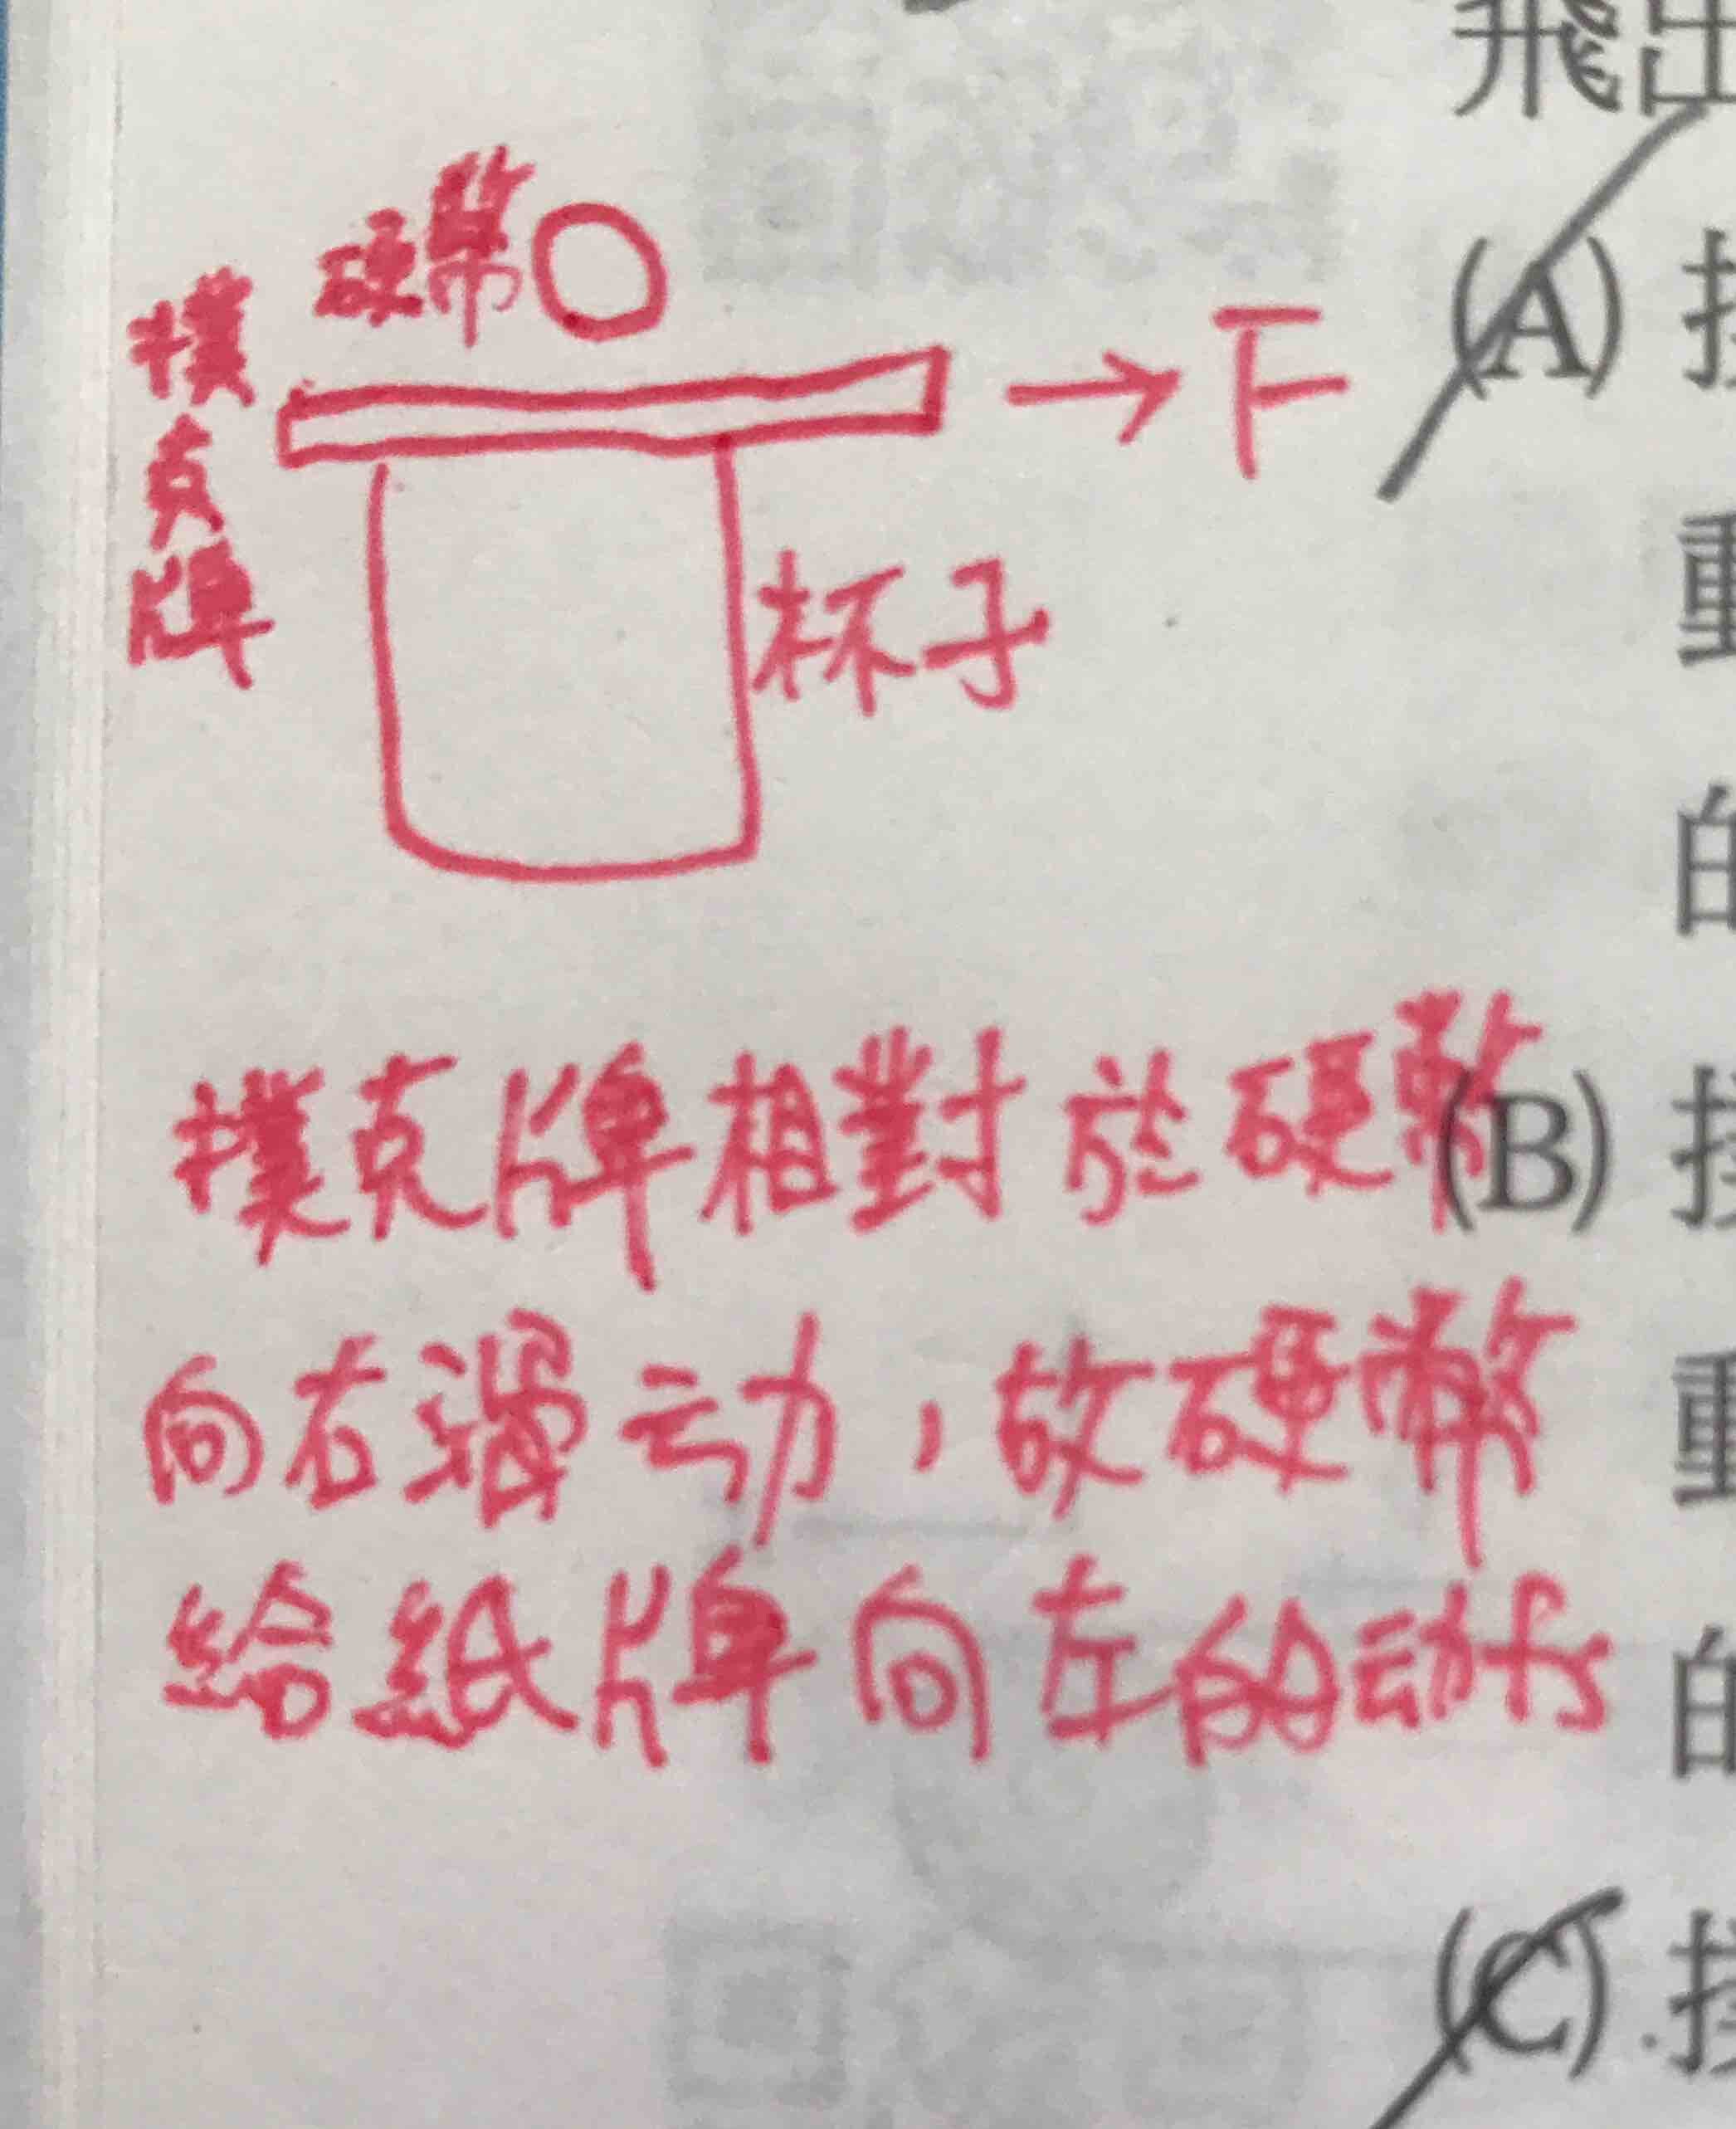 飛出
硬幣
撲克牌
F
(A)
杯子
重
的
撲克牌相對於硬幣
(B)
向右滑动，故硬幣
重
給紙牌向左的动fs
的
(C)